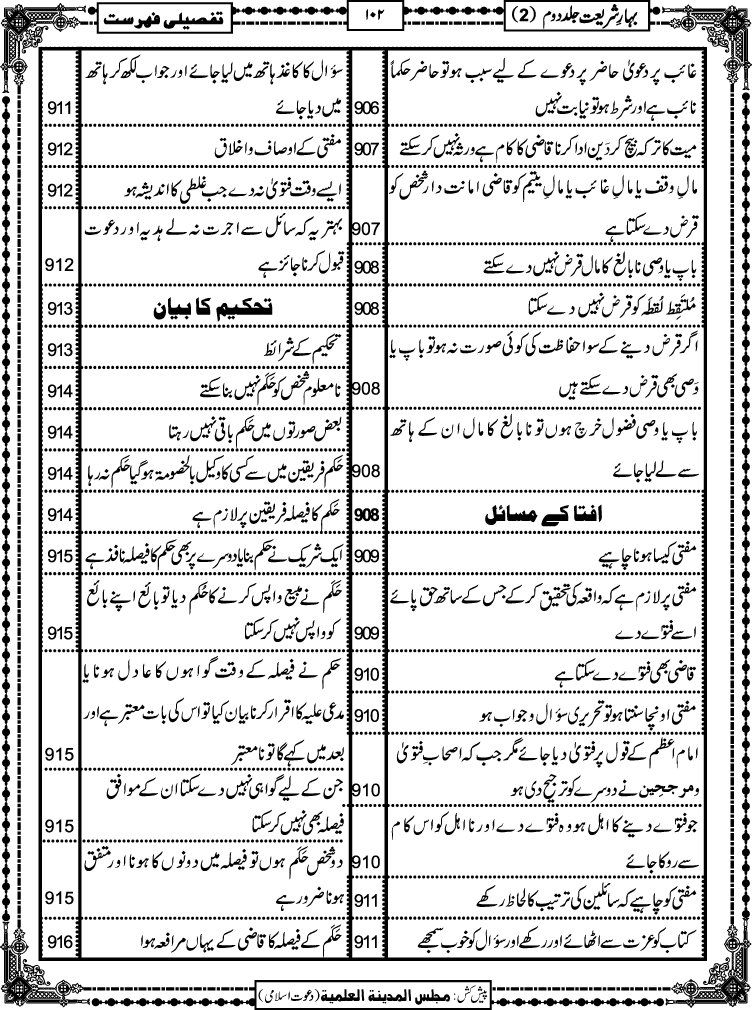 بہارِ شریعت جلد دوم (2)
۱۰۲
تفصیلی فہرست
غائب پر دعویٰ حاضر پر دعوے کے لیے سبب ہو تو حاضر حکماً
نائب ہے اور شرط ہو تو نیابت نہیں 906
میت کا ترکہ بیچ کر دَین ادا کرنا قاضی کا کام ہے ورثہ نہیں کر سکتے 907
مالِ وقف یا مالِ غائب یا مالِ یتیم کو قاضی امانت دار شخص کو
قرض دے سکتا ہے 907
باپ یا وصی نابالغ کا مال قرض نہیں دے سکتے 908
مُلتَقِط لُقطَہ کو قرض نہیں دے سکتا 908
اگر قرض دینے کے سوا حفاظت کی کوئی صورت نہ ہو تو باپ یا
وَصی بھی قرض دے سکتے ہیں 908
باپ یا وصی فضول خرچ ہوں تو نابالغ کا مال ان کے ہاتھ
سے لے لیا جائے 908
افتا کے مسائل 908
مفتی کیسا ہونا چاہیے 909
مفتی پر لازم ہے کہ واقعہ کی تحقیق کر کے جس کے ساتھ حق پائے
اسے فتوٰے دے 909
قاضی بھی فتوٰے دے سکتا ہے 910
مفتی اونچا سنتا ہو تو تحریری سؤال و جواب ہو 910
امام اعظم کے قول پر فتویٰ دیا جائے مگر جب کہ اصحابِ فتویٰ
ومرجحین نے دوسرے کو ترجیح دی ہو 910
جو فتوٰے دینے کا اہل ہو وہ فتوٰے دے اور نا اہل کو اس کام
سے روکا جائے 910
مفتی کو چاہیے کہ سائلین کی ترتیب کا لحاظ رکھے 911
کتاب کو عزت سے اٹھائے اور رکھے اور سؤال کو خوب سمجھے 911
سؤال کا کاغذ ہاتھ میں لیا جائے اور جواب لکھ کر ہاتھ
میں دیا جائے 911
مفتی کے اوصاف و اخلاق 912
ایسے وقت فتویٰ نہ دے جب غلطی کا اندیشہ ہو 912
بہتر یہ کہ سائل سے اجرت نہ لے ہدیہ اور دعوت
قبول کرنا جائز ہے 912
تحکیم کا بیان 913
تحکیم کے شرائط 913
نامعلوم شخص کو حَکَم نہیں بنا سکتے 914
بعض صورتوں میں حَکم باقی نہیں رہتا 914
حَکم فریقین میں سے کسی کا وکیل بالخصومۃ ہو گیا حَکم نہ رہا 914
حَکم کا فیصلہ فریقین پر لازم ہے 914
ایک شریک نے حَکم بنایا دوسرے پر بھی حَکم کا فیصلہ نافذ ہے 915
حَکَم نے مبیع واپس کرنے کا حُکم دیا تو بائع اپنے بائع
کو واپس نہیں کر سکتا 915
حَکم نے فیصلہ کے وقت گواہوں کا عادل ہونا یا
مدعی علیہ کا اقرار کرنا بیان کیا تو اس کی بات معتبر ہے اور
بعد میں کہے گا تو نا معتبر 915
جن کے لیے گواہی نہیں دے سکتا ان کے موافق
فیصلہ بھی نہیں کر سکتا 915
دو شخص حَکَم ہوں تو فیصلہ میں دونوں کا ہونا اور متفق
ہونا ضرور ہے 915
حَکَم کے فیصلہ کا قاضی کے یہاں مرافعہ ہوا 916
پیش کش: مجلس المدینۃ العلمیۃ (دعوت اسلامی)